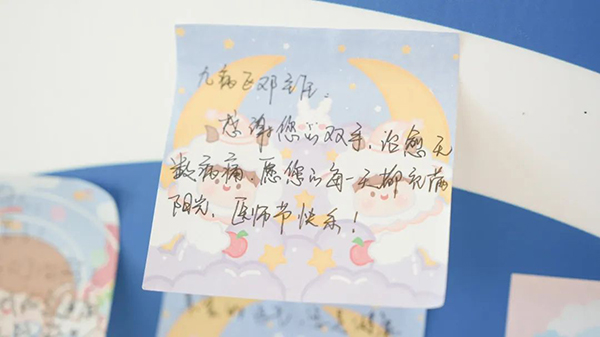 九病区邓主任、
感谢您的双手，治愈无
数病痛、愿您的每一天都充满
阳光，医师节快乐！